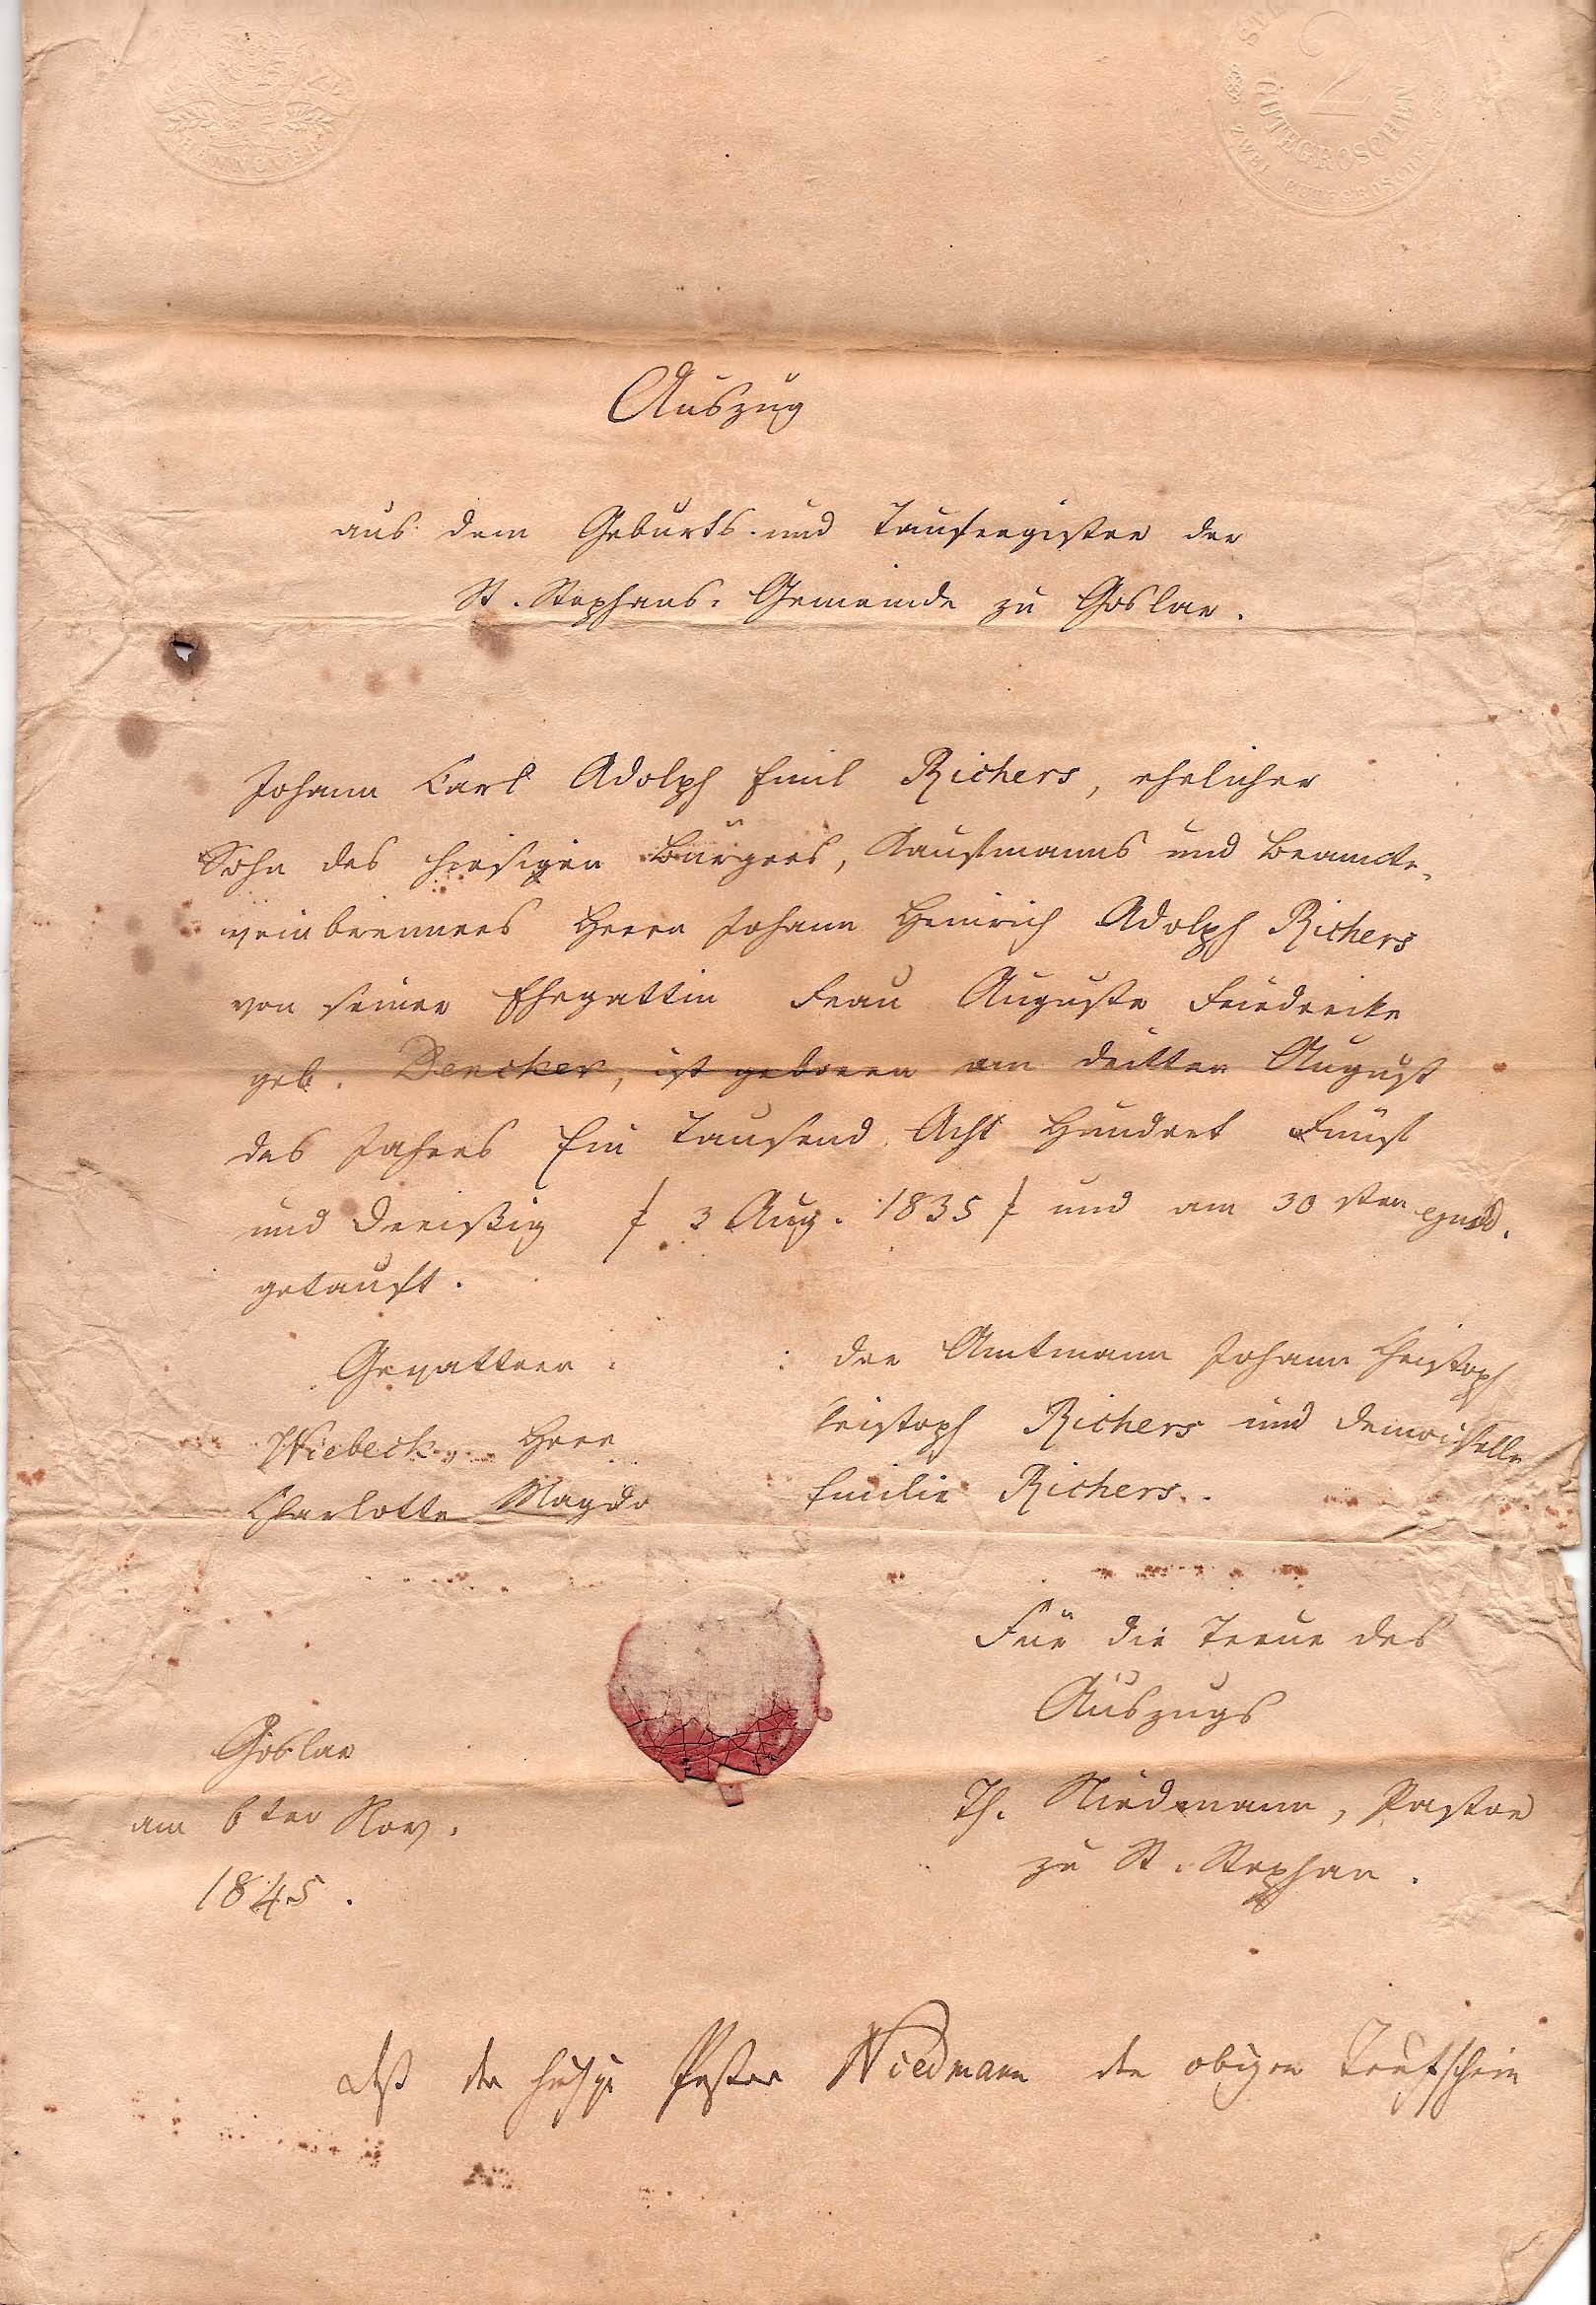 HANNOVER
2
GUTEGROSCHEN
ZWEI GUTEGROSCHEN
Auszug
aus dem Geburts- und Taufregister der
St. Stephans-Gemeinde zu Goslar.
Johann Carl Adolph Emil Richers, ehelicher
Sohn des hiesigen Bürgers, Kaufmanns und Brannte-
weinbrenners Herrn Johann Heinrich Adolph Richers
von seiner Ehegattin Frau Auguste Friederike
geb. Dencker, ist geboren am dritten August
des Jahres Ein Tausend Acht Hundert Fünf
und Dreißig / 3 Aug. 1835 / und am 30 sten ejusd.
getauft.
Gevattern : : der Amtmann Johann Christoph
Wiebeck, Herr Cristoph Richers und Demoiselle
Charlotte Magda Emilie Richers.
Für die Treue des
Auszugs
Goslar
am 6ten Nov.
1845.
Th. Niedmann, Pastor
zu St. Stephan.
daß der hiesige Pastor Niedmann den obigen Taufschein